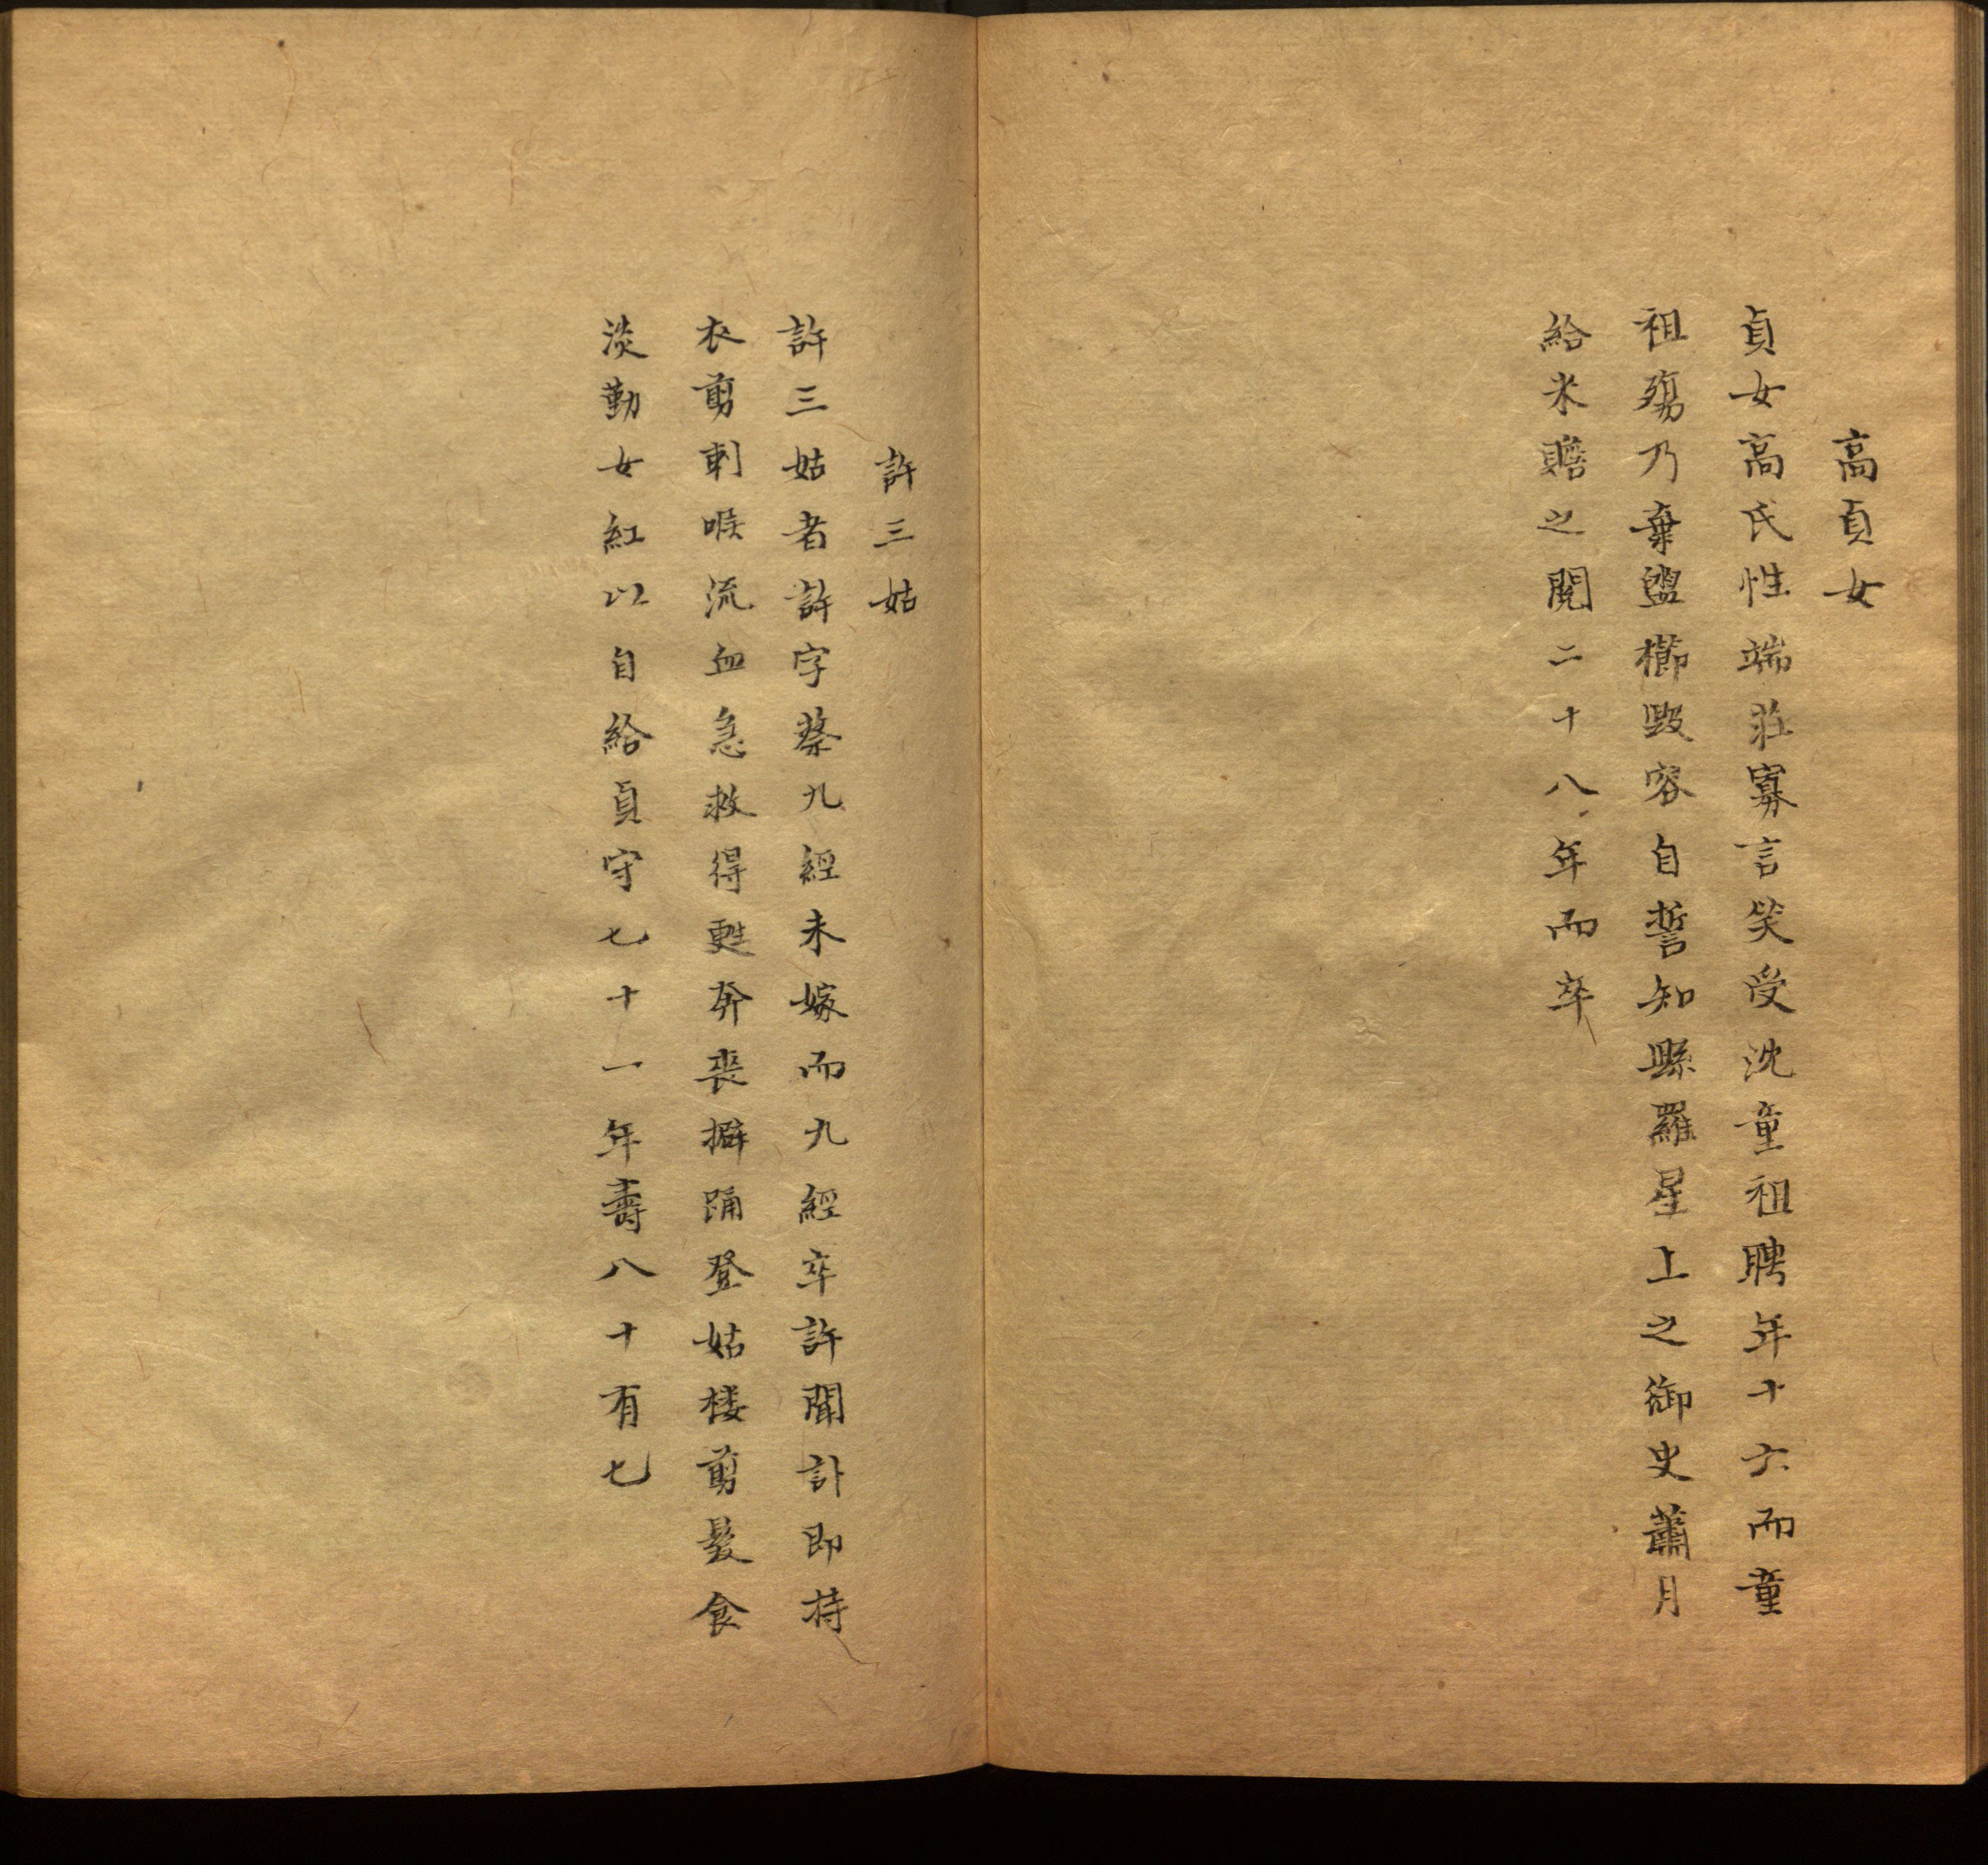 高貞女
貞女高氏性端莊寡言笑受沈童祖聘年十六而童
祖殤乃棄盥櫛毀容自誓知縣羅星上之御史蕭月
給米贍之閱二十八年而卒
許三姑
許三姑者許字蔡九經未嫁而九經卒許聞訃即持
衣剪刺喉流血急救得甦奔喪擗踊登姑楼剪髮食
淡勤女紅以自給貞守七十一年壽八十有七